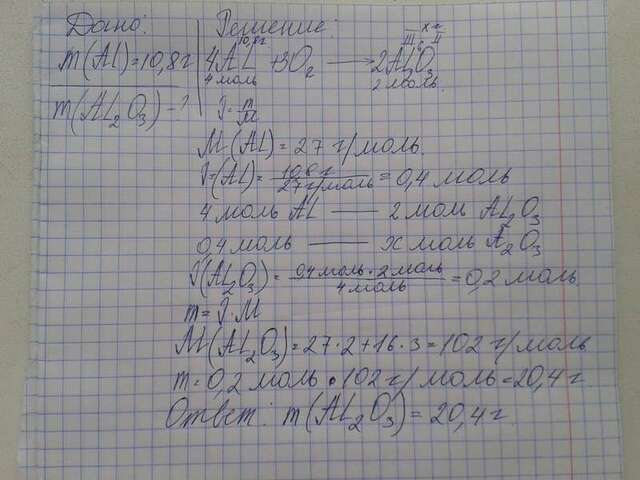 Дано:
m(Al)=10,8г
m(Al2O3)-?
Решение:
10,8г х г
III II
4Al +3O2 → 2Al2O3
4 моль 2 моль.
ν=m/M
M(Al)=27 г/моль.
ν(Al)= 10,8 г / 27 г/моль =0,4 моль
4 моль Al — 2 моль Al2O3
0,4 моль — x моль Al2O3
ν(Al2O3)= 0,4 моль·2 моль / 4 моль =0,2 моль.
m=ν·M
M(Al2O3)=27·2+16·3=102 г/моль
m=0,2 моль·102 г/моль=20,4 г.
Ответ: m(Al2O3)=20,4 г.